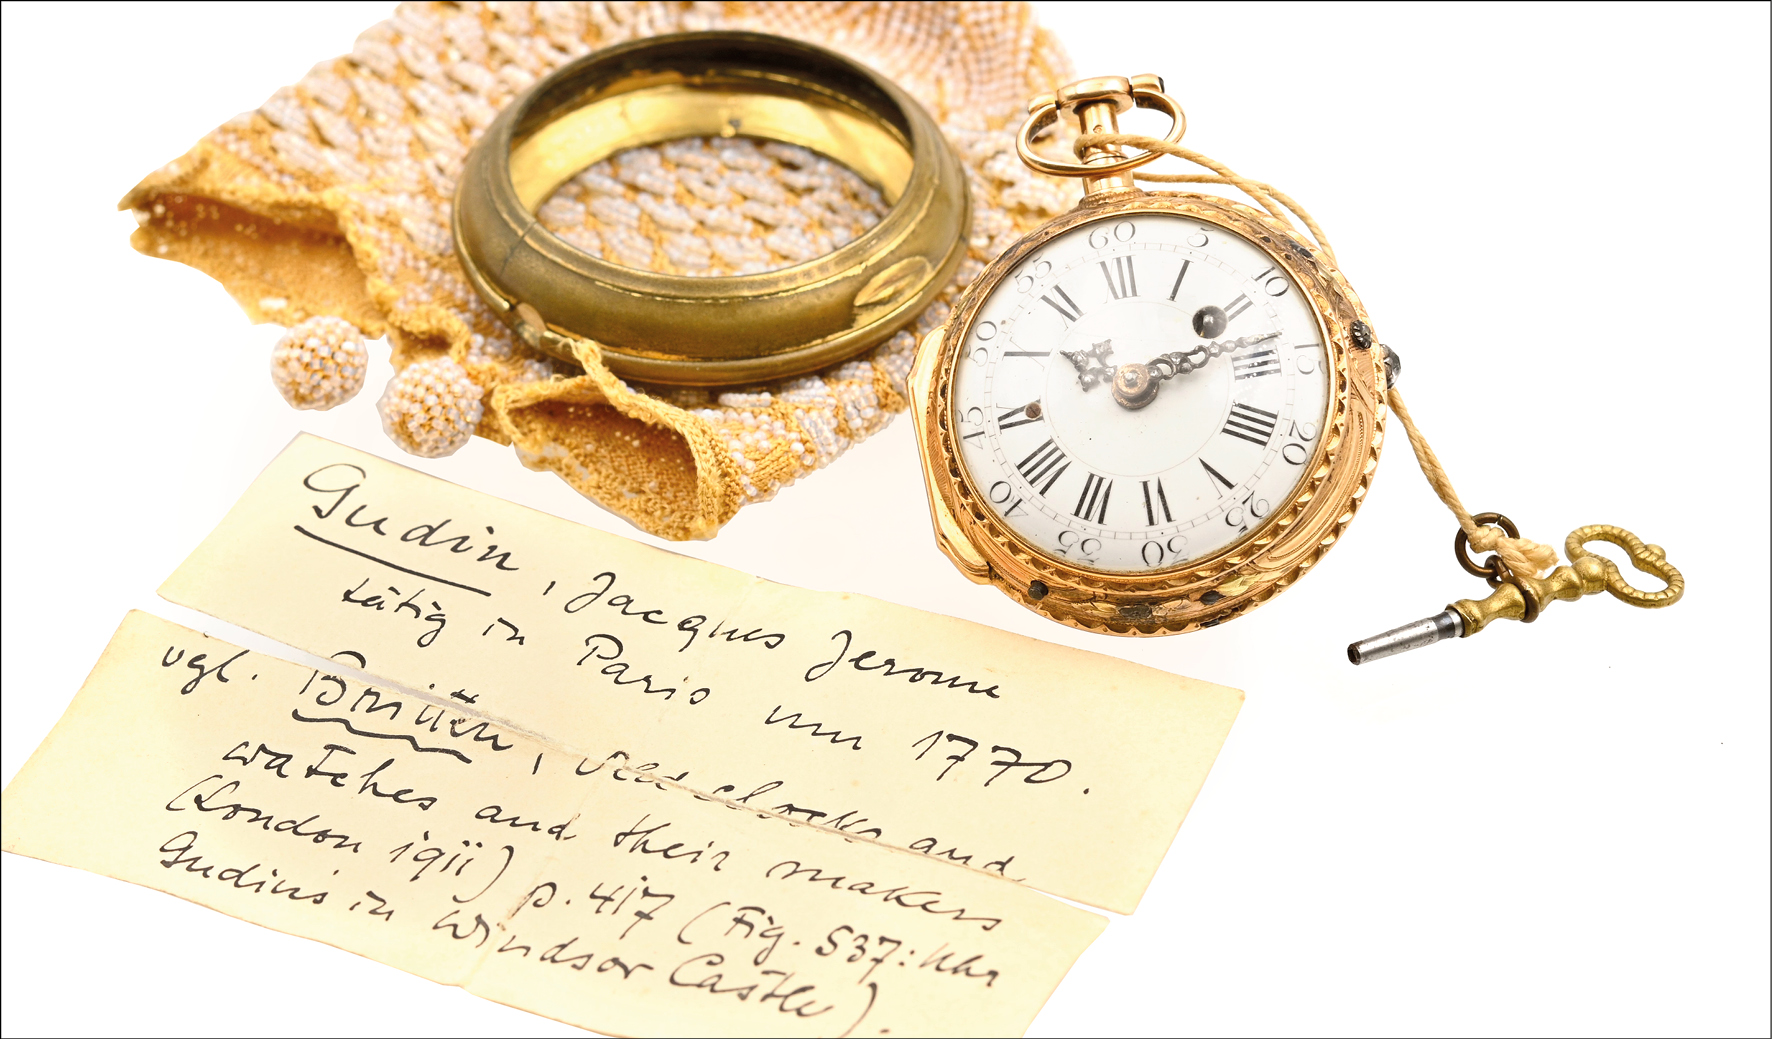 Gudin, Jacques Jerome
tätig in Paris um 1770.
vgl. Britten, old clocks and
watches and their makers
(London 1911) p. 417 (Fig. 537: Uhr
Gudins in Windsor Castle).
60 5 10 15 20 25 30 35 40 45 50 55
XII I II III IIII V VI VII VIII IX X XI